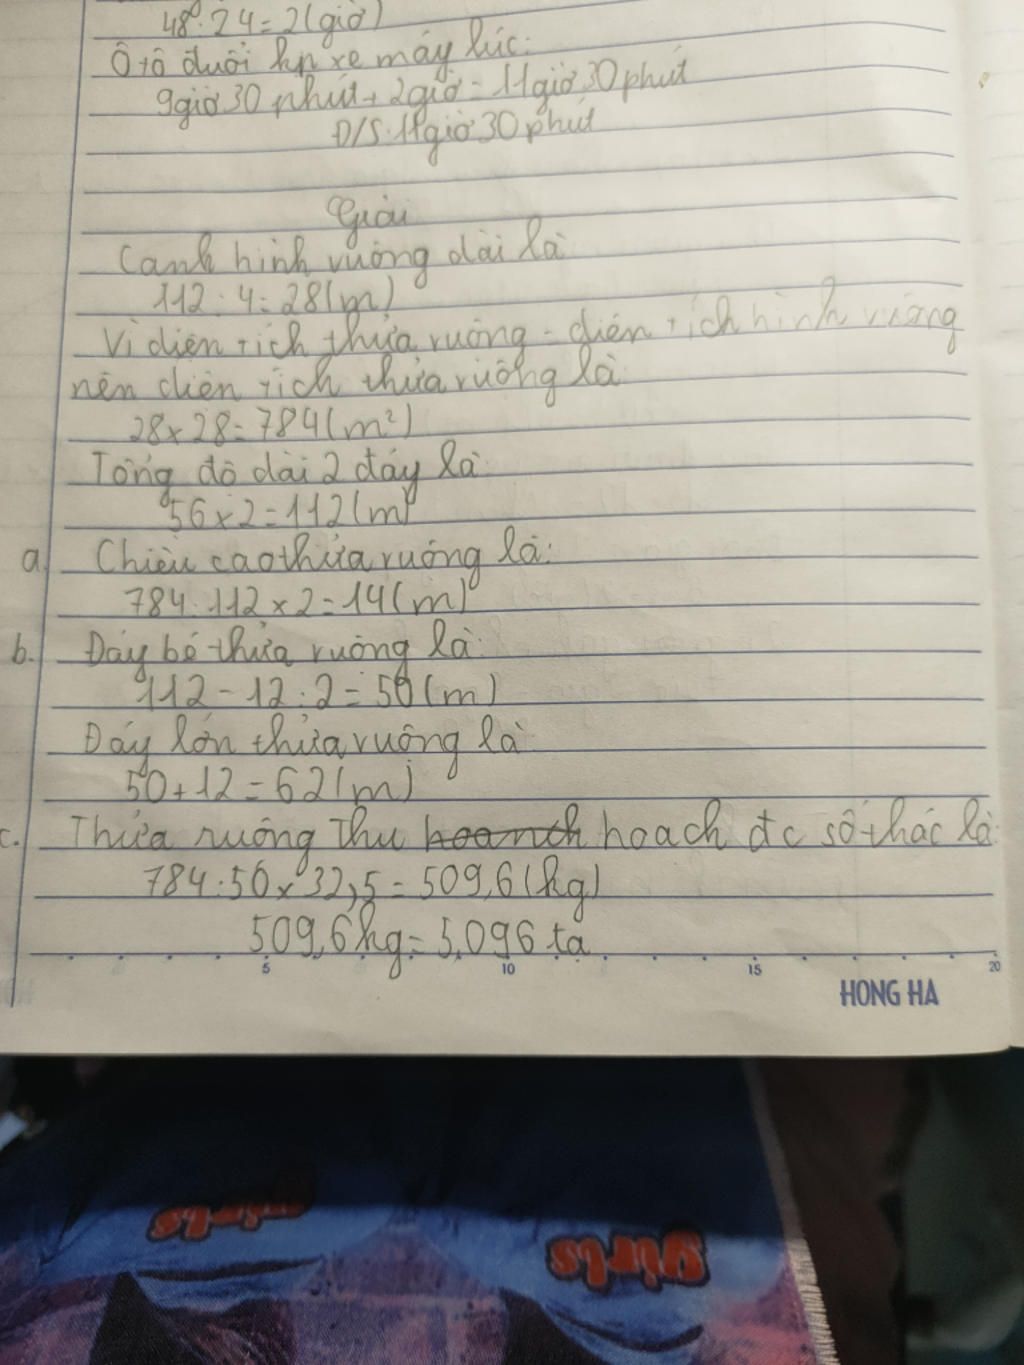 48:24=2(giờ)
Ô tô đuổi kịp xe máy lúc:
9giờ 30 phút + 2giờ = 11giờ 30 phút
Đ/S: 11giờ 30 phút
Giải
Cạnh hình vuông dài là
112 : 4 = 28(m)
Vì diện tích thửa ruộng = diện tích hình vuông
nên diện tích thửa ruộng là:
28 x 28 = 784(m²)
Tổng độ dài 2 đáy là:
56 x 2 = 112(m)
a. Chiều cao thửa ruộng là:
784:112 x 2 = 14(m)
b. Đáy bé thửa ruộng là:
112 - 12 : 2 = 50(m)
Đáy lớn thửa ruộng là:
50 + 12 = 62(m)
c. Thửa ruộng thu hoạch đc số thóc là:
784:50 x 32,5 = 509,6(kg)
509,6kg = 5,096 tạ
5 10 15 20
HONG HA
girls girls